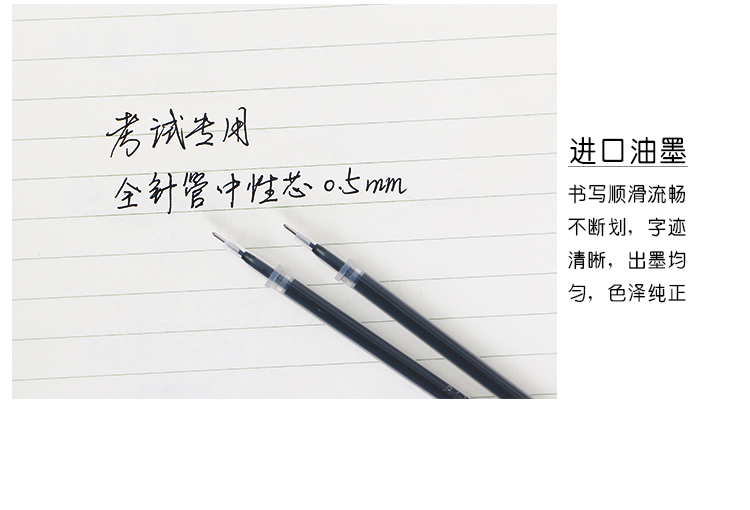 考试专用
全针管中性芯0.5mm
进口油墨
书写顺滑流畅
不断划，字迹
清晰，出墨均
匀，色泽纯正